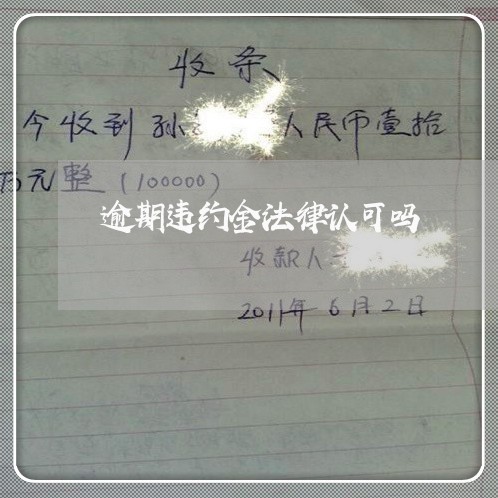 收条
今收到孙 人民币壹拾
万元整（100000）
逾期违约金法律认可吗
收款人
2011年6月2日